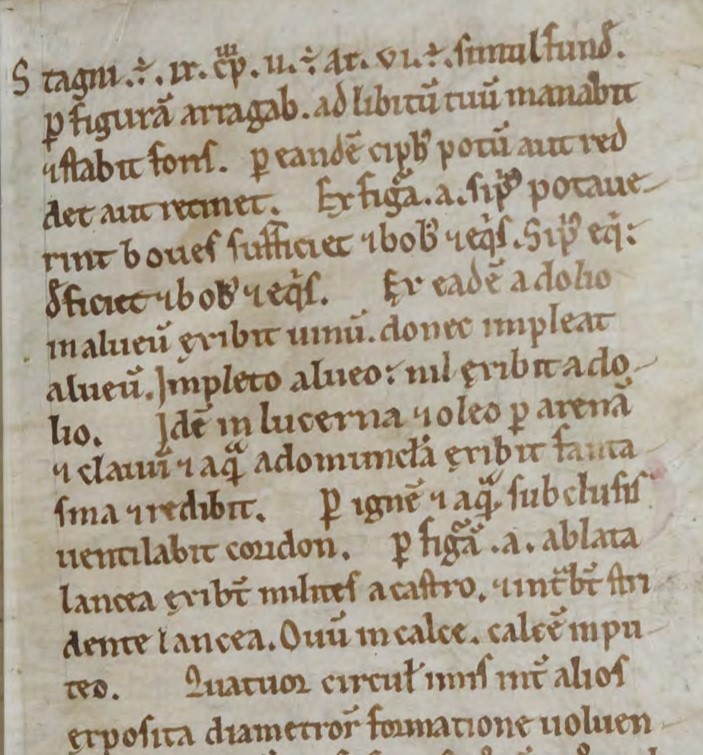 S tagni .÷. ix. cup̄. ii. ÷ Ar. vi. ÷. simul fund̄.
ꝑ figurā arragab. ad libitū tuū manabit
⁊ stabit fons. ꝑ eandē ciphꝰ potū aut red
det aut retinet. Ex figͣa .a. si pͥꝰ potaue
rint boues sufficiet ⁊ bobꝰ ⁊ eqͥs. Si pͥꝰ eqͥ:
deficiet ⁊ bobꝰ ⁊ eqͥs. Ex eadē a dolio
in alueū exibit uinū. donec impleat
alueū. Impleto alueo: nil exibit a do
lio. Idē in lucerna ⁊ oleo ꝑ arenā
⁊ clauū ⁊ aqͣ̄ ad exibit fanta
sma ⁊ redibit. ꝑ ignē ⁊ aqͣ̄ subclusis
uentilabit ꝑ figͣā .a. ablata
lancea exibt̄ milites a castro. ⁊ intͣbt̄ stri
dente lancea. Ouū in calce. calcē in pu
teo. Quatuor circul̄ iniſ int̄ alios
exposita diametroꝝ formatione uoluen